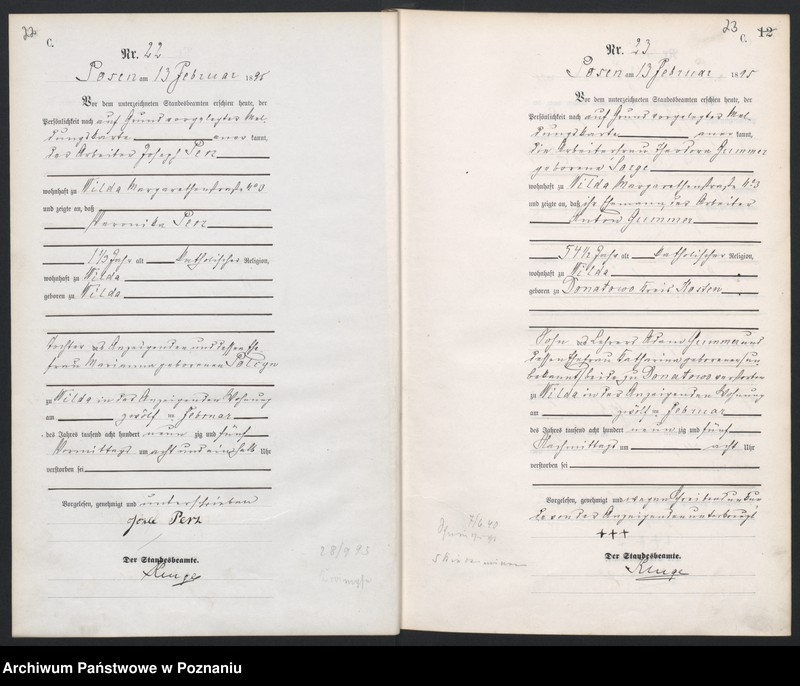 22
C.
Nr. 22
Posen am 13 Februar 1895
Vor dem unterzeichneten Standesbeamten erschien heute, der
Persönlichkeit nach auf Grund vorgelegter Mel
dungskarte anerkannt,
der Arbeiter Josef Perz
wohnhaft zu Wilda Margarethenstraße
und zeigte an, daß
Veronika Perz
1 1/2 Jahr alt katholischer Religion,
wohnhaft zu Wilda
geboren zu Wilda
Tochter des Anzeigenden und dessen Ehe
frau Marianna geborenen
zu Wilda in des Anzeigenden Wohnung
am zwölften Februar
des Jahres tausend acht hundert neunzig und fünf
Vormittags um acht und ein halb Uhr
verstorben sei
Vorgelesen, genehmigt und unterschrieben
Perz
Der Standesbeamte.
28/9 93
23
C. 12
Nr. 23
Posen am 13 Februar 1895
Vor dem unterzeichneten Standesbeamten erschien heute, der
Persönlichkeit nach auf Grund vorgelegter Mel
dungskarte anerkannt,
die Arbeiterfrau Theodora Gummer
geborene Sorge
wohnhaft zu Wilda Margarethenstraße
und zeigte an, daß ihr Ehemann, der Arbeiter
Anton Gummer
54 1/2 Jahr alt katholischer Religion,
wohnhaft zu Wilda
geboren zu Donatowo Kreis Kosten
Sohn des Lehrers Adam Gummer und
dessen Ehefrau Katharina geborenen un
bekannt beide zu Donatowo verstorben
zu Wilda in des Anzeigenden Wohnung
am zwölften Februar
des Jahres tausend acht hundert neunzig und fünf
Nachmittags um acht Uhr
verstorben sei
Vorgelesen, genehmigt und wegen Schreibensunkun
de von der Anzeigenden unterkreuzt
+++
Der Standesbeamte.
7/6 40
Archiwum Państwowe w Poznaniu